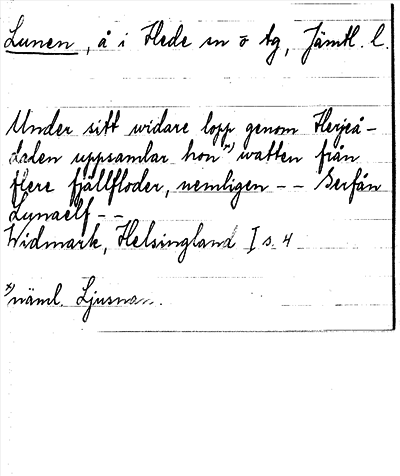 Lunen, å i Hede sn o tg, Jämtl. l.
Under sitt widare lopp genom Herjeå-
dalen uppsamlar hon *) watten från
flere fjällfloder, nemligen -- Serfån
Lynaelf --
Widmark, Helsingland I s. 4
*) näml. Ljusnan.